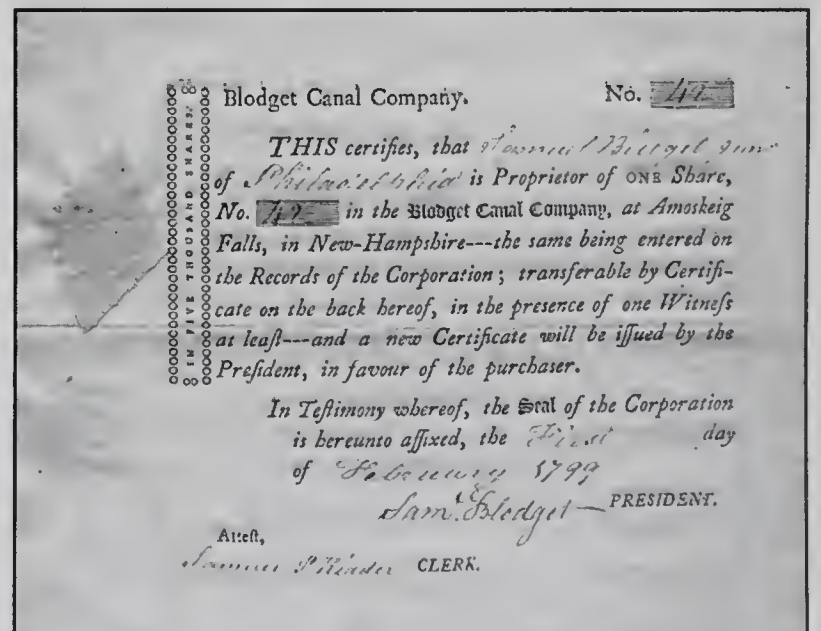 Blodget Canal Company. No. 42
THIS certifies, that Samuel Blodget Junr
of Philadelphia is Proprietor of ONE Share,
No. 42 in the Blodget Canal Company, at Amoskeig
Falls, in New-Hampshire---the same being entered on
the Records of the Corporation; transferable by Certifi-
cate on the back hereof, in the presence of one Witneſs
at leaſt---and a new Certificate will be iſſued by the
Preſident, in favour of the purchaser.
IN FIVE THOUSAND SHARES.
In Teſtimony whereof, the Seal of the Corporation
is hereunto affixed, the First day
of February 1799
Saml. Blodget PRESIDENT.
Atteſt,
Samuel P Kidder CLERK.